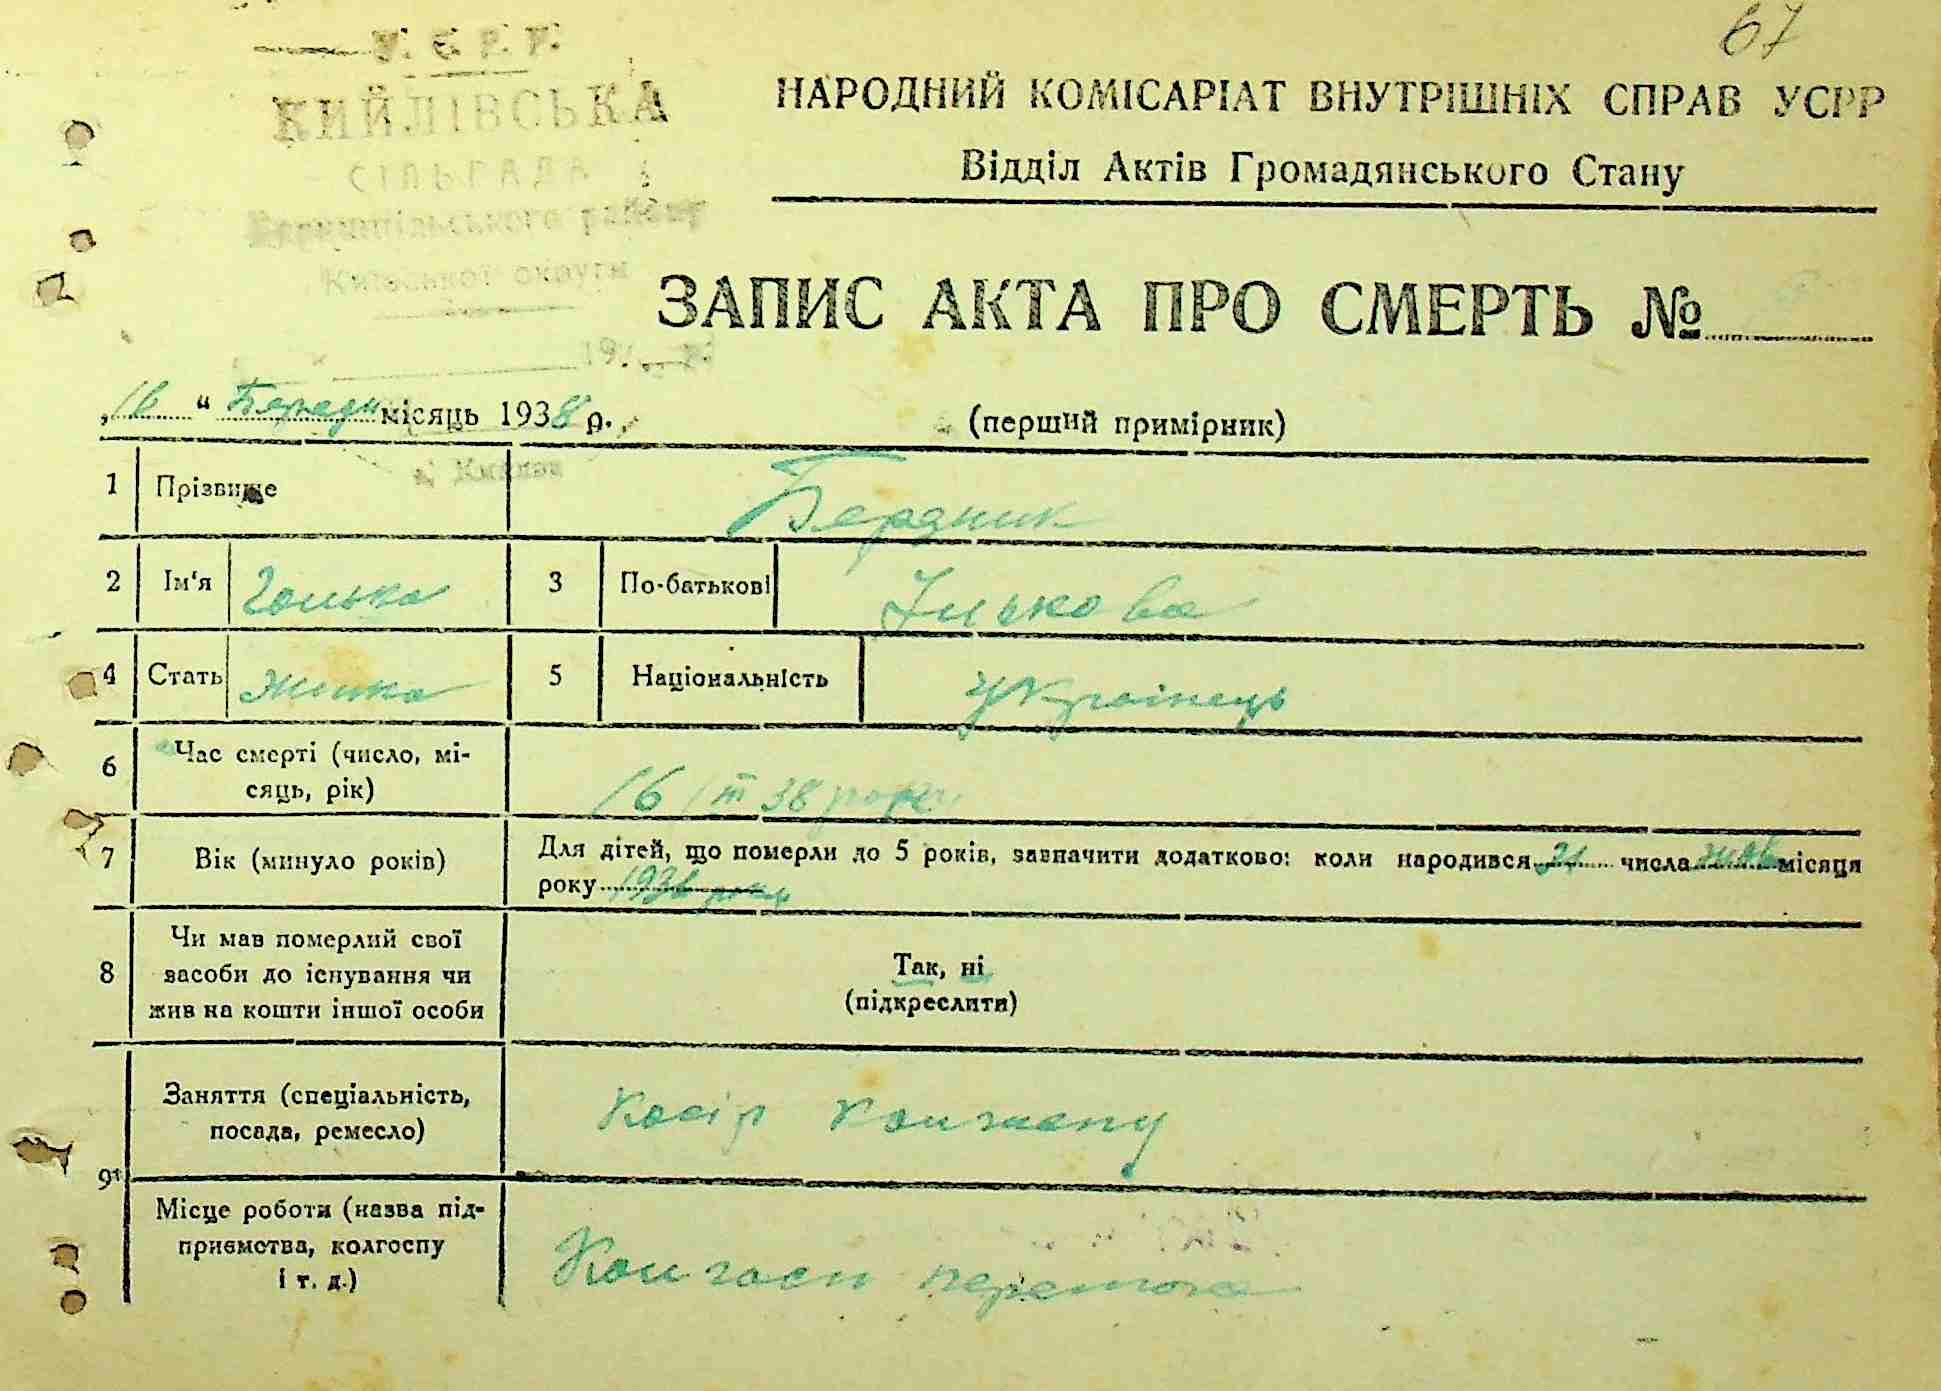 67
У. С. Р. Р.
КИЙЛІВСЬКА
СІЛЬРАДА
району
Київської округи
19 р.
НАРОДНИЙ КОМІСАРІАТ ВНУТРІШНІХ СПРАВ УСРР
Відділ Актів Громадянського Стану
ЗАПИС АКТА ПРО СМЕРТЬ №
„16" місяць 1938 р.
(перший примірник)
1 Прізвище Бердник
2 Ім'я Галька 3 По-батькові Ількова
4 Стать жінка 5 Національність Українець
6 Час смерті (число, мі-
сяць, рік) 16/ІІІ 38 року
7 Вік (минуло років) Для дітей, що померли до 5 років, зазначити додатково: коли народився 21 числа місяця
року
8 Чи мав померлий свої
засоби до існування чи
жив на кошти іншої особи
Так, ні
(підкреслити)
9 Заняття (спеціальність,
посада, ремесло)
Місце роботи (назва під-
приємства, колгоспу
і т. д.) Колгосп перемога